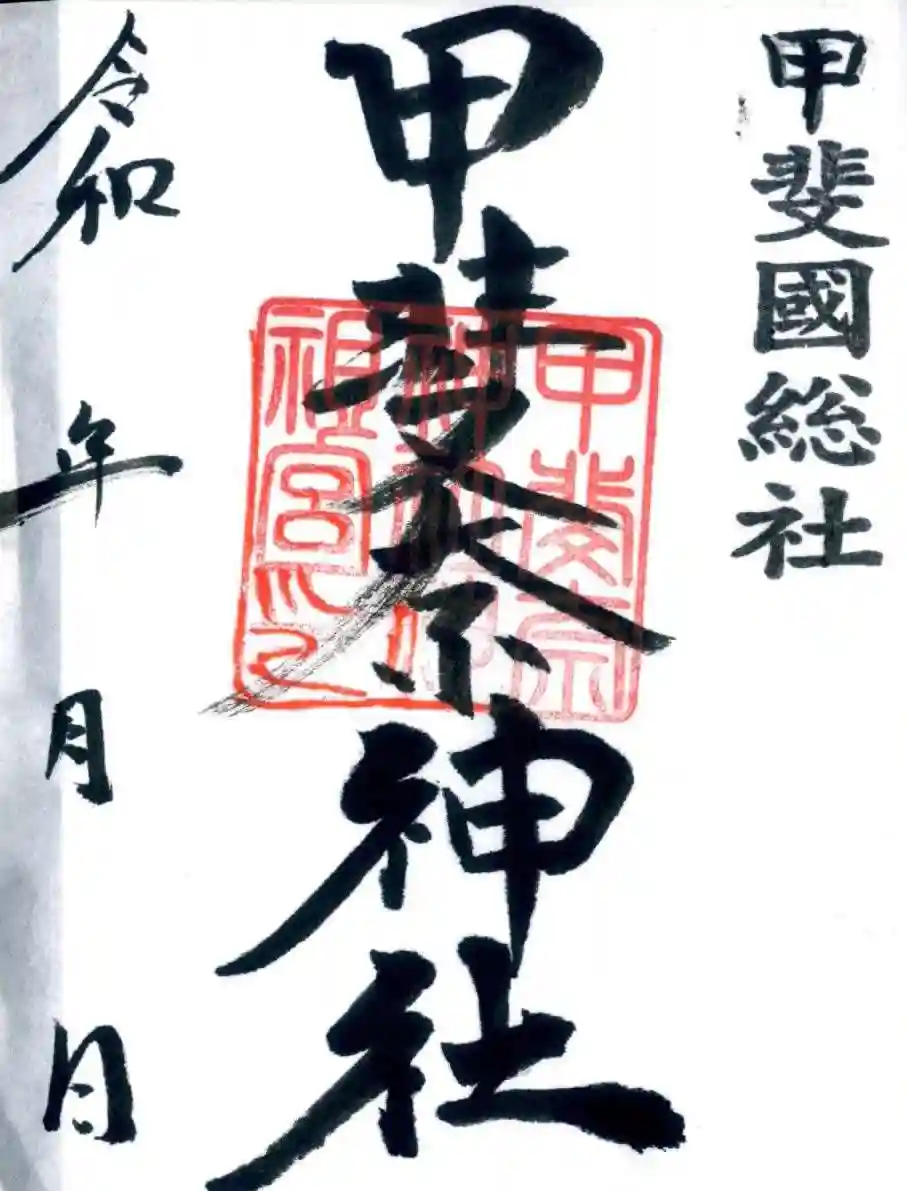 甲斐國総社
甲斐奈神社
甲斐奈
神
祖宮印
令和 年 月 日